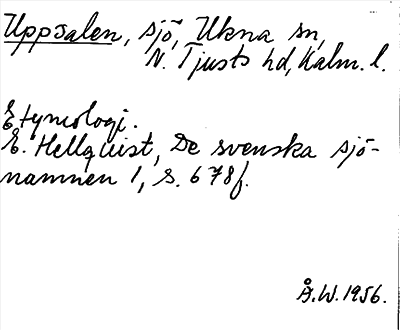 Uppsalen, sjö, Ukna sn,
N. Tjusts hd, Kalm. l.
Etymologi.
E. Hellquist, De svenska sjö-
namnen 1, s. 678f.
Å.W. 1956.